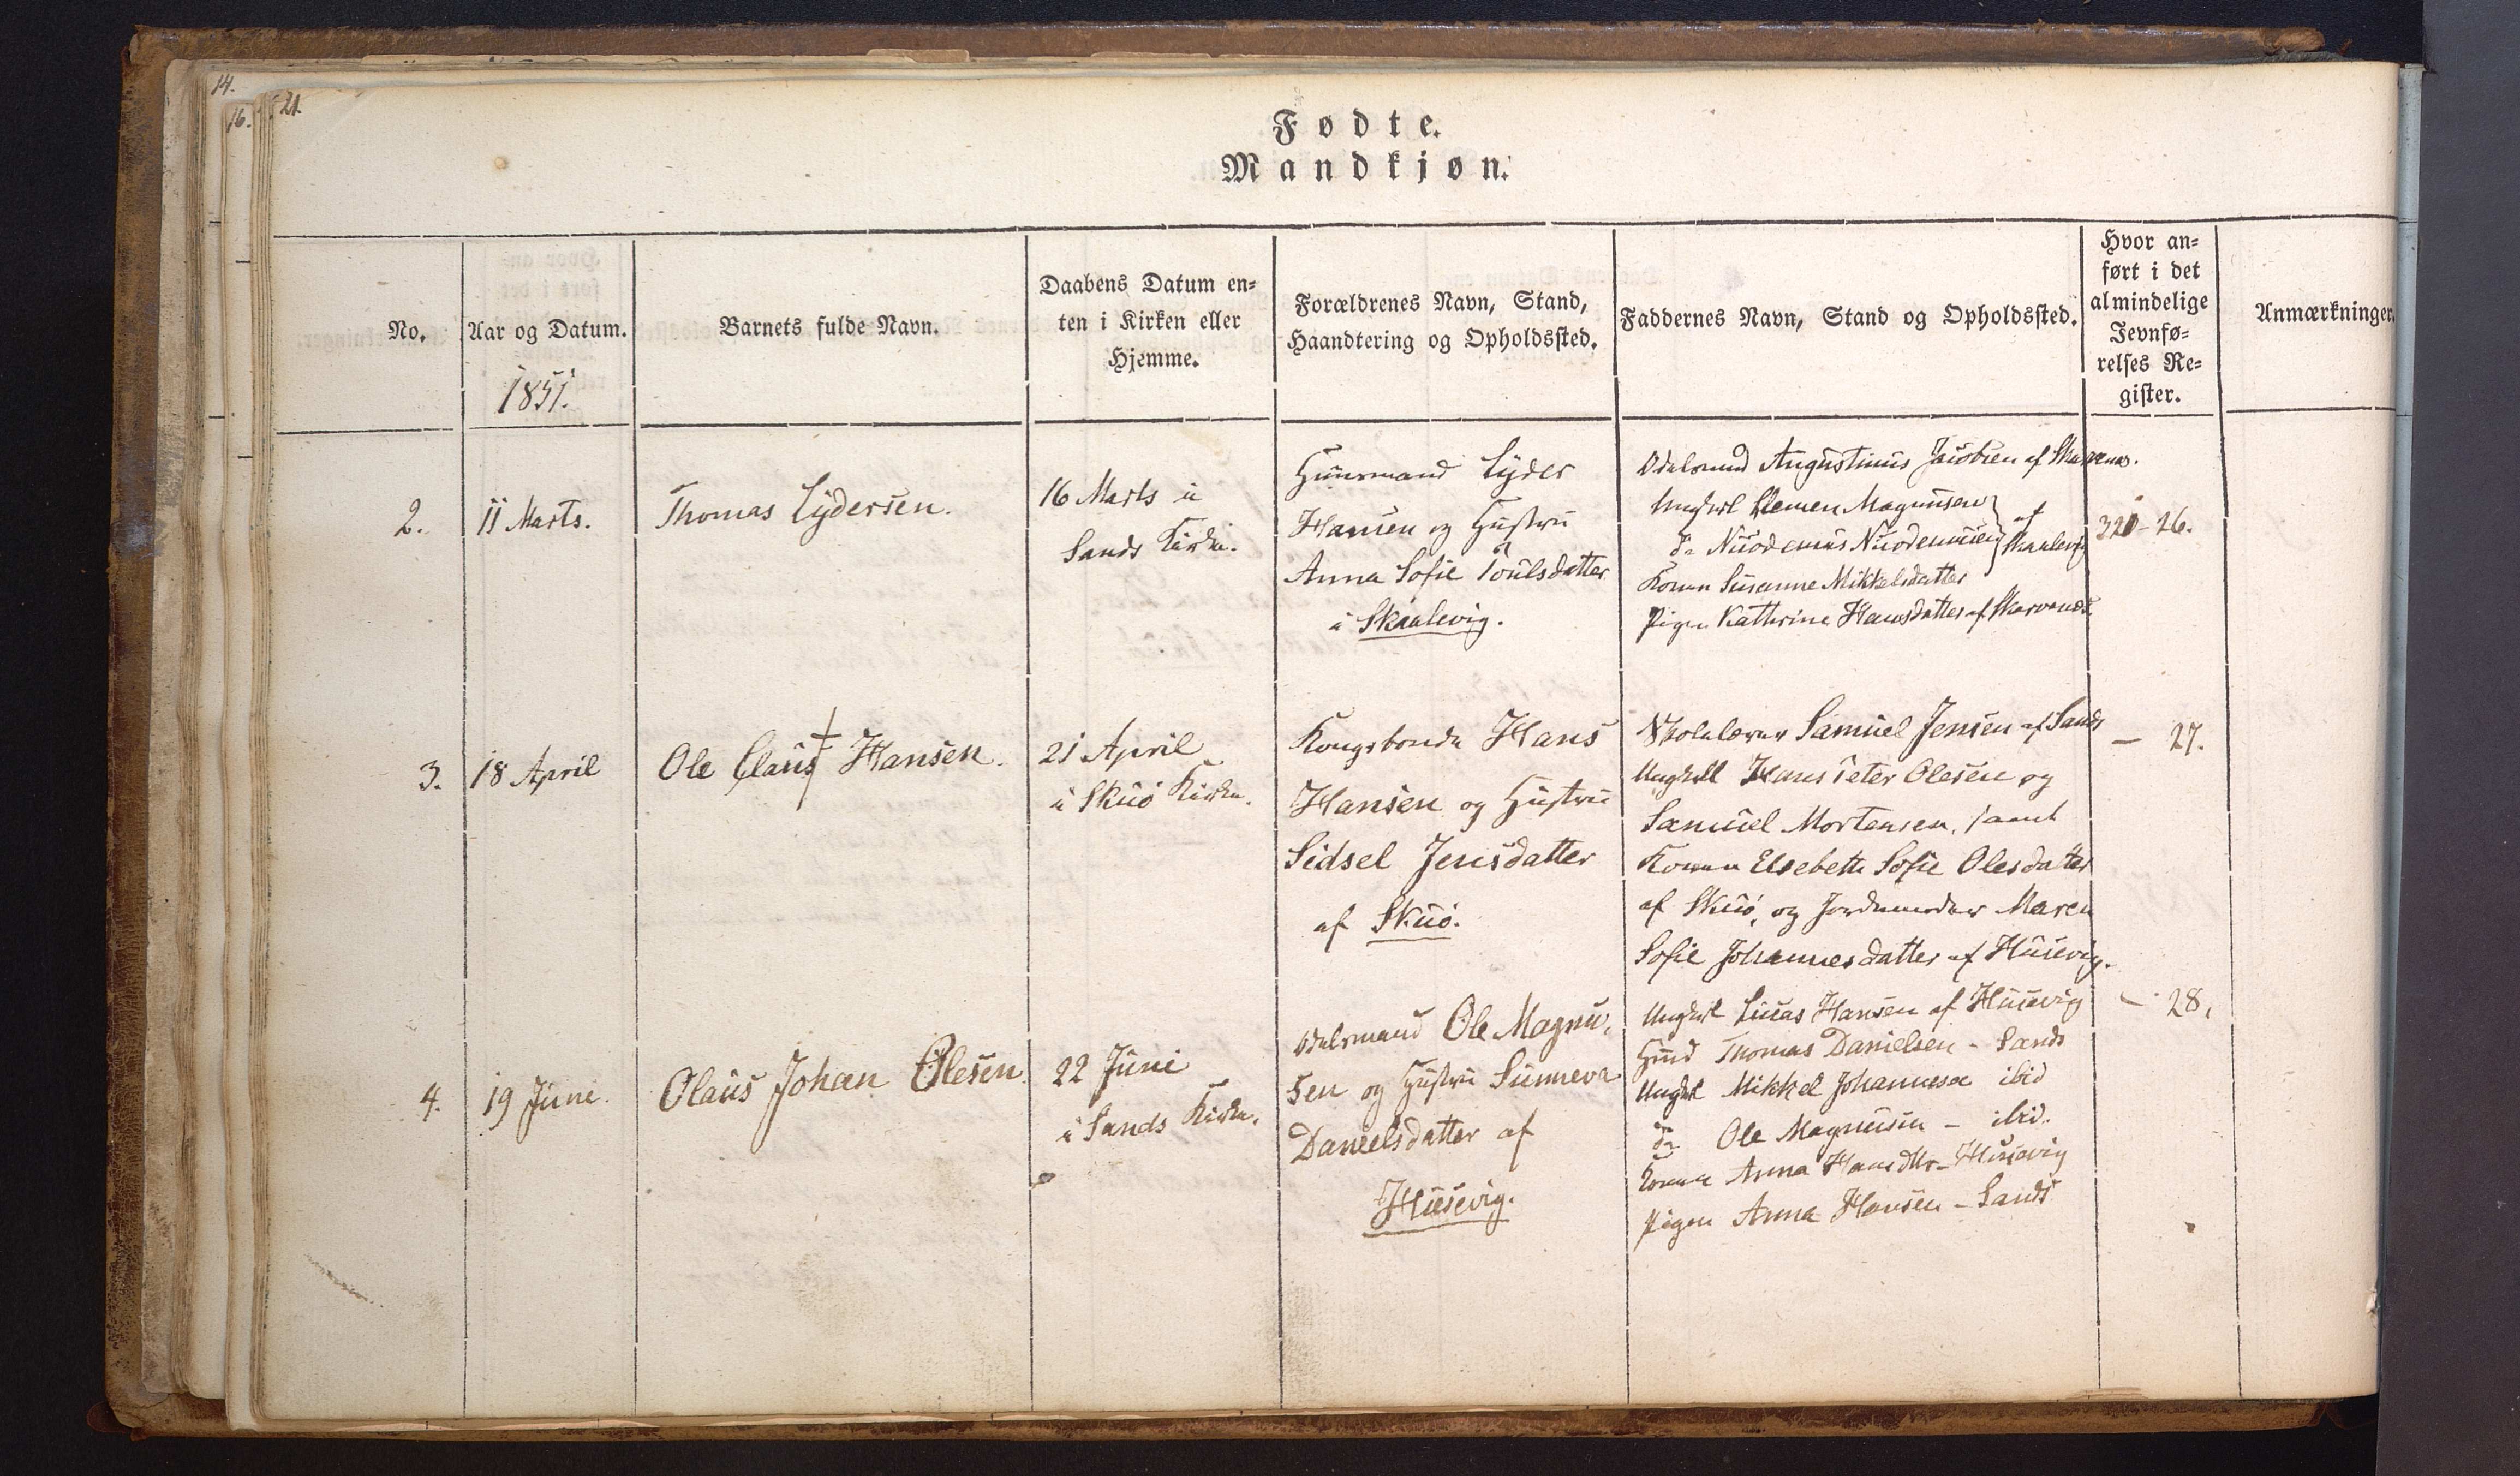 14.
16.
21.
Fødte.
Mandkjøn.
No.
Aar og Datum.
1851.
Barnets fulde Navn.
Daabens Datum en-
ten i Kirken eller
Hjemme.
Forældrenes Navn, Stand,
Haandtering og Opholdssted.
Faddernes Navn, Stand og Opholdssted.
Hvor an-
ført i det
almindelige
Jevnfø-
relses Re-
gister.
Anmærkninger.
2.
11 Marts.
Thomas Lydersen.
16 Marts i
Sands Kirke.
Huusmand Lyder
Hansen og Hustru
Anna Sofie Poulsdatter
i Skaalevig.
Odelsmand Augustinus Jacobsen af Skarvenæs.
Ungkarl Clemen Magnusen
do Nicodemus Nicodemusen
af
Skaalevig
Konen Susanne Mikkelsdatter
Pigen Kathrine Hansdatter af Skarvenæs
320-26.
3.
18 April
Ole Claus Hansen.
21 April
i Skuø Kirke.
Kongsbonde Hans
Hansen og Hustru
Sidsel Jensdatter
af Skuø.
Skolelærer Samuel Jensen af Sands
Ungkarl Hans Peter Olesen og
Samuel Mortensen, samt
Konen Elsebeth Sofie Olesdatter
af Skuø, og Jordemoder Maren
Sofie Johannesdatter af Husevig.
— 27.
4.
19 Juni.
Olaus Johan Olesen
22 Juni
i Sands Kirke.
Odelsmand Ole Magnu-
sen og Hustru Sunneva
Danielsdatter af
Husevig.
Ungkarl Lucas Hansen af Husevig
Huusmd Thomas Danielsen - Sands
Ungkarl Mikkel Johannesen ibid
do Ole Magnusen - ibid.
Konen Anna Hansdtr - Husevig
Pigen Anna Hansen - Sands
— 28.